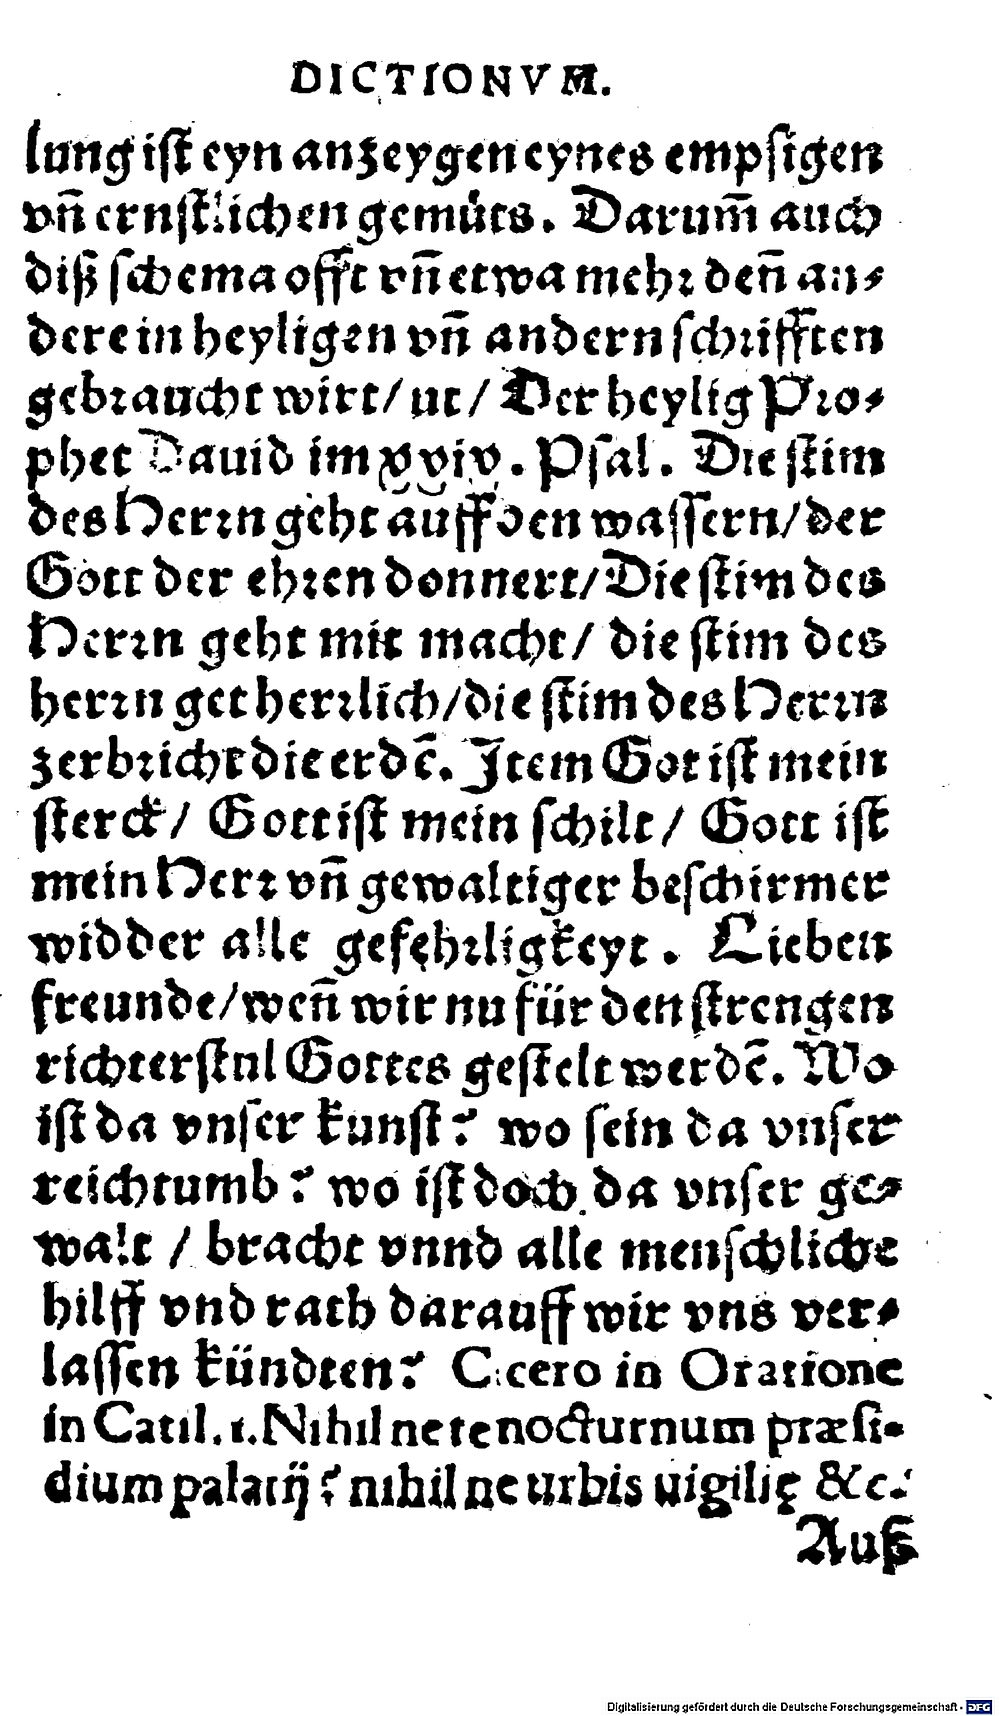 DICTIONVM.
lung ist eyn anzeygen eynes empsigen
vn̄ ernstlichen gemuͤts. Darum̄ auch
diß schema offt vn̄ etwa mehr den̄ an⸗
dere in heyligen vn̄ andern schrifften
gebraucht wirt/ ut/ Der heylig Pro⸗
phet Dauid im xxix. Psal. Die stim
des Herrn geht auff den wassern/ der
Gott der ehren donnert/ Die stim des
Herrn geht mit macht/ die stim des
herrn get herrlich/ die stim des Herrn
zerbricht die erdē. Item Got ist mein
sterck/ Gott ist mein schilt/ Gott ist
mein Herr vn̄ gewaltiger beschirmer
widder alle gefęhrligkeyt. Lieben
freunde/ wen̄ wir nu für den strengen
richterstul Gottes gestelt werdē. Wo
ist da vnser kunst? wo sein da vnser
reichtumb? wo ist doch da vnser ge⸗
walt / bracht vnnd alle menschliche
hilff vnd rath darauff wir vns ver⸗
lassen kündten? Cicero in Oratione
in Catil. 1. Nihil ne te nocturnum præsi⸗
dium palatij? nihil ne urbis uigilię &c.
Auß
Digitalisierung gefördert durch die Deutsche Forschungsgemeinschaft - DFG